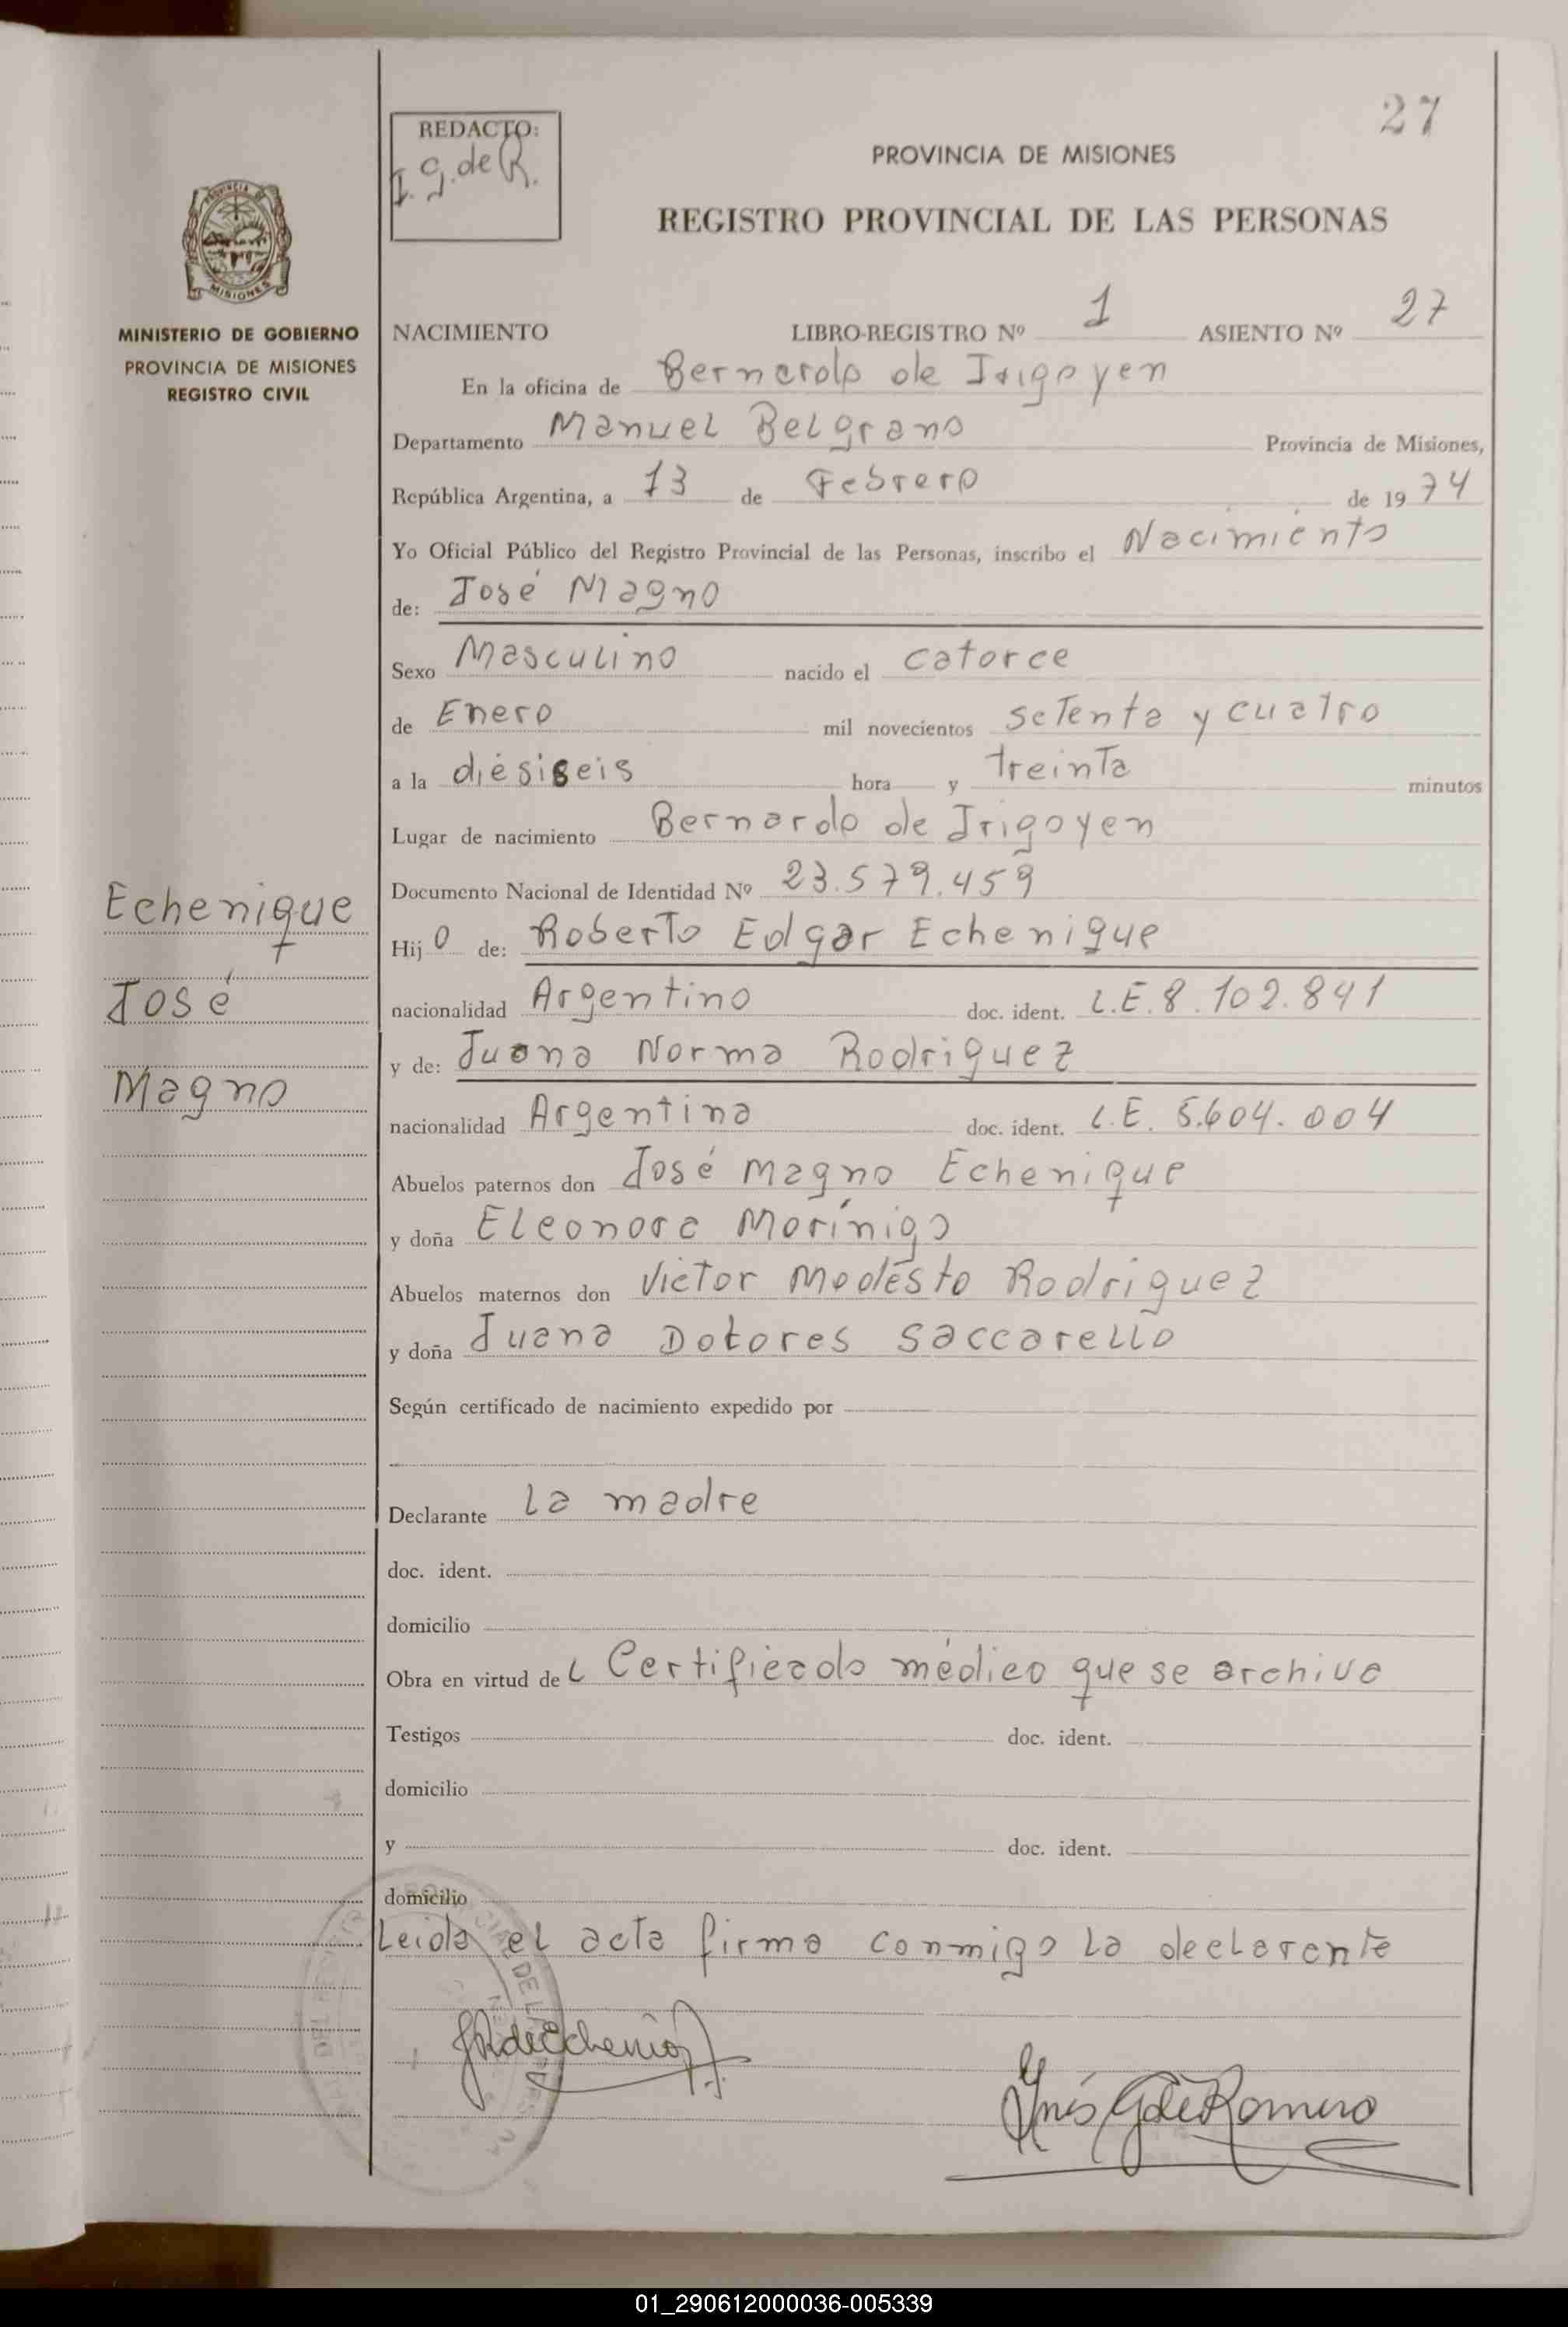 27
REDACTO:
I. G. de R.
PROVINCIA DE MISIONES
REGISTRO PROVINCIAL DE LAS PERSONAS
MISIONES
MINISTERIO DE GOBIERNO
PROVINCIA DE MISIONES
REGISTRO CIVIL
NACIMIENTO LIBRO-REGISTRO Nº 1 ASIENTO Nº 27
En la oficina de Bernardo de Irigoyen
Departamento Manuel Belgrano Provincia de Misiones,
República Argentina, a 13 de Febrero de 1974
Yo Oficial Público del Registro Provincial de las Personas, inscribo el Nacimiento
de: José Magno
Sexo Masculino nacido el catorce
de Enero mil novecientos setenta y cuatro
a la diésiseis hora y treinta minutos
Lugar de nacimiento Bernardo de Irigoyen
Documento Nacional de Identidad Nº 23.579.459
Echenique
Hijo de: Roberto Edgar Echenique
José
nacionalidad Argentino doc. ident. L.E. 8.102.841
y de: Juana Norma Rodriguez
Magno
nacionalidad Argentina doc. ident. L.E. 5.604.004
Abuelos paternos don José Magno Echenique
y doña Eleonora Morínigo
Abuelos maternos don Victor Modésto Rodriguez
y doña Juana Dolores Saccarello
Según certificado de nacimiento expedido por
Declarante La madre
doc. ident.
domicilio
Obra en virtud del Certificado médico que se archiva
Testigos doc. ident.
domicilio
y doc. ident.
domicilio
Leida el acta firma conmigo la declarante
Inés G de Romero
01_290612000036-005339